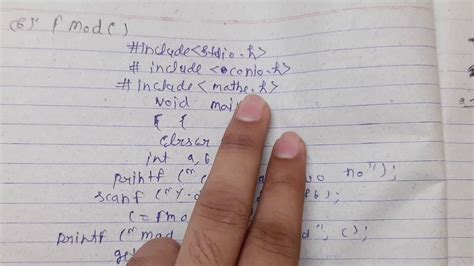 (6) fmod()
#include<stdio.h>
# include <conio.h>
# include < mathe.h>
void mai
{ {
clrscr
int a,b
printf ("
no");
scanf ("%
c = fmo
printf ("mod
d", c);
get